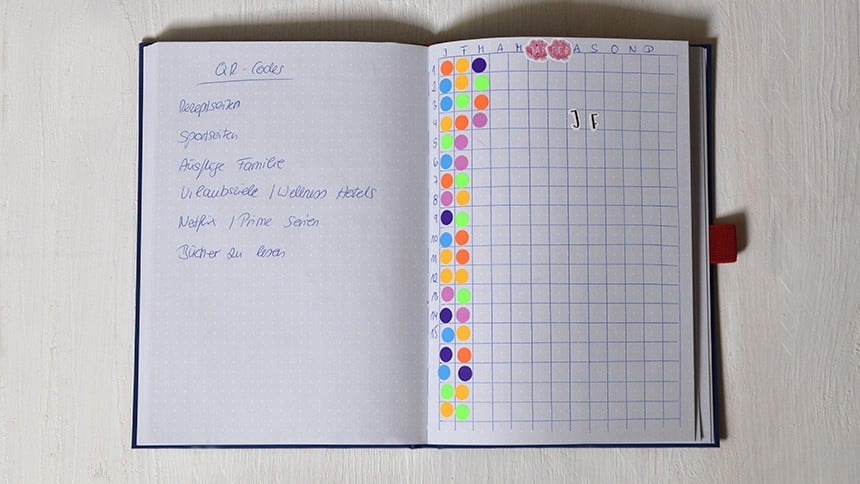 QR-Codes
Rezeptseiten
Sportseiten
Ausflüge Familie
Urlaubsziele / Wellness Hotels
Netflix / Prime Serien
Bücher zu lesen
J F M A M A S O N D
1
2
3
4
J F
5
6
7
8
9
10
11
12
13
14
15